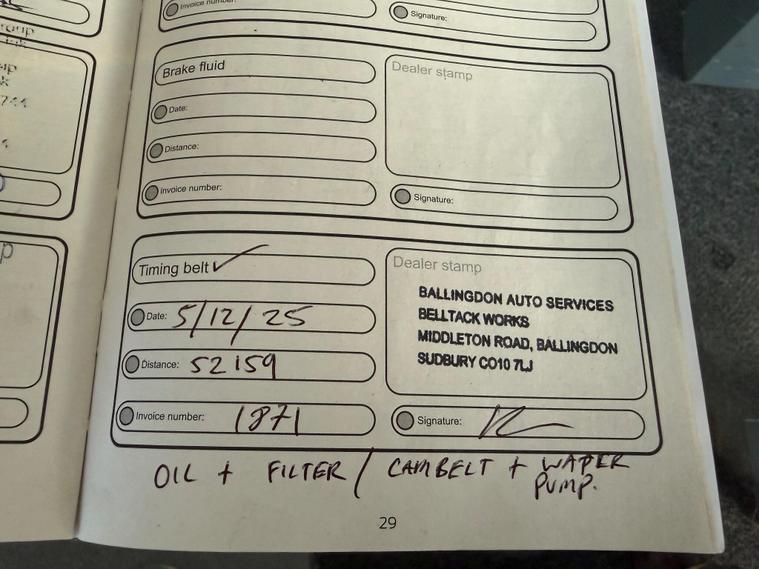 Invoice number:
Signature:
Brake fluid
Dealer stamp
Date:
Distance:
Invoice number:
Signature:
Timing belt ✓
Dealer stamp
Date: 5/12/25
Distance: 52159
Invoice number: 1871
BALLINGDON AUTO SERVICES
BELLTACK WORKS
MIDDLETON ROAD, BALLINGDON
SUDBURY CO10 7LJ
Signature:
OIL + FILTER / CAMBELT + WATER
PUMP.
29